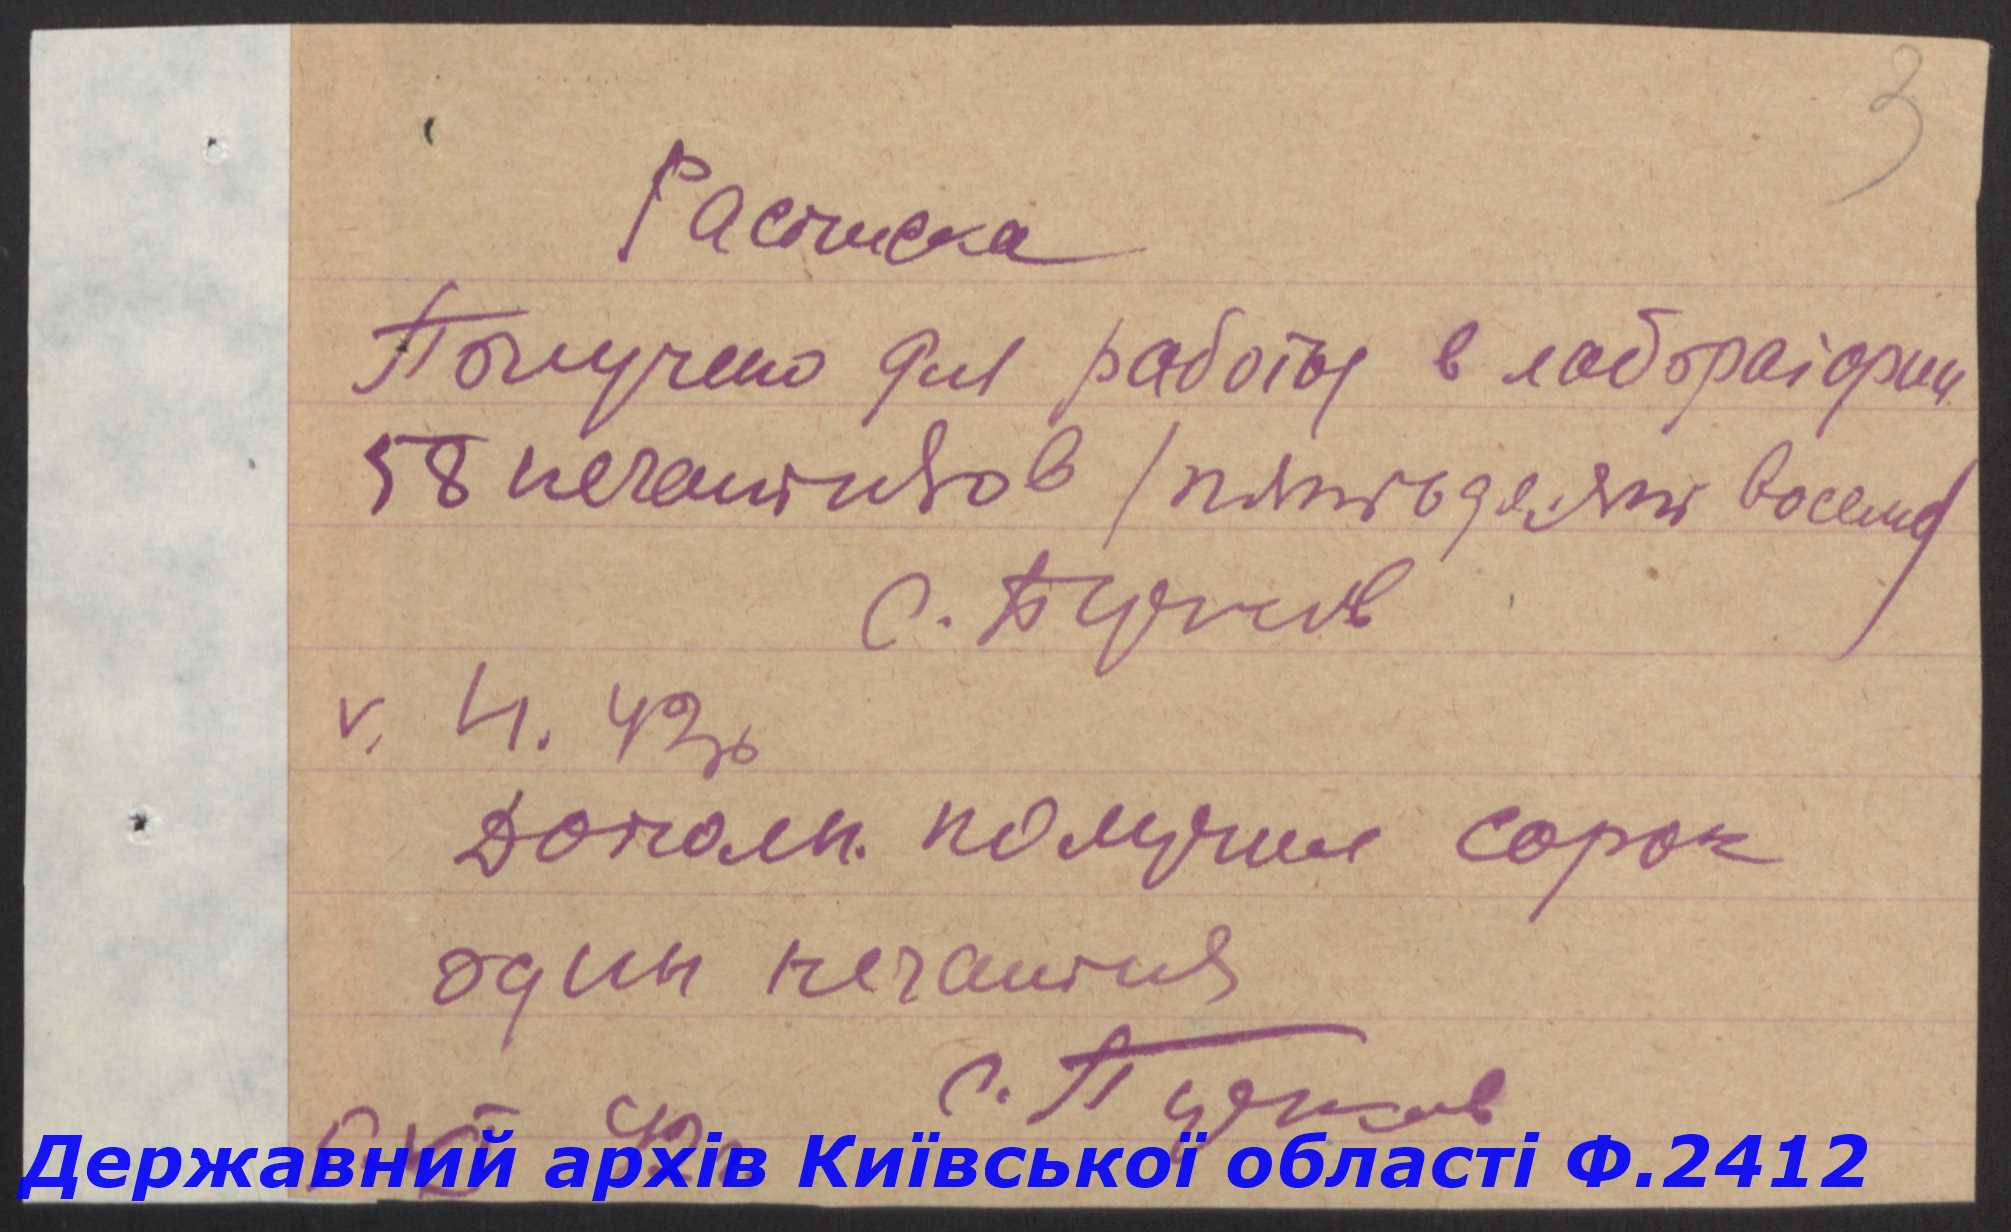 3
Расписка
Получено для работы в лаборатории
58 негативов /пятьдесят восемь/
С.
V. 42г
Дополн. получил сорок
один негатив
С.
42г
Державний архів Київської області Ф.2412